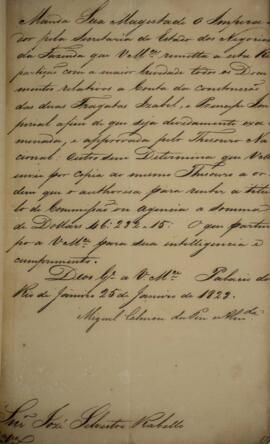 Manda Sua Magestade O Impera-
dor pela Secretaria de Estado dos Negocios
da Fazenda que V Mce. remetta a esta Re
partição com a maior brevidade todos os Docu
mentos relativos a Conta da construcção
das duas Fragatas Izabel, e Principe Im
perial afim de que seja devidamente exa
minada, e approvada pelo Thesouro Na
cional: Outro sim Determina que V Mce
envie por copia ao mesmo Thesouro a or
dem que o authorisa para receber a titu
lo de Commissão ou agencia a somma
de Dollars 46:232.15: O que partici
po a V Mce. para sua intelligencia e
cumprimento.
Deos Ge. a V. Mce. Palacio do
Rio de Janeiro 25 de Janeiro de 1829.
Miguel Calmon du Pin e Almda.
Snr. José Silvestre Rebello